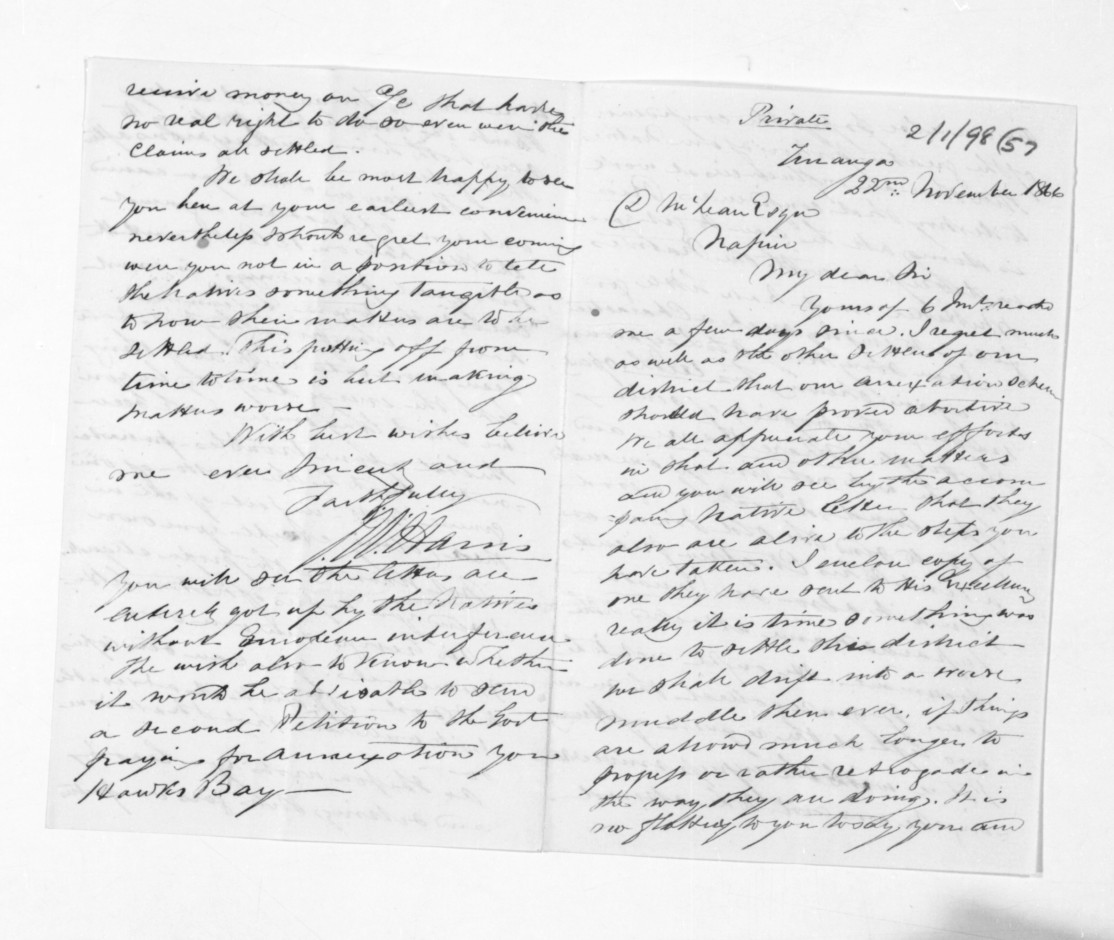 Private
2/1/98 (57
Turanga
22nd November 1866
D McLean Esqr
Napier
My dear Sir
Yours of 6 Inst. reached
me a few days since. I regret much
as well as old other settlers of our
district that our annexation scheme
should have proved abortive
We all appreciate your efforts
in that and other matters
and you will see by the accom
=pany Native letter that they
also are alive to the steps you
have taken. I enclose copy of
one they have sent to His Excellency
really it is time something was
done to settle this district
we shall drift into a worse
muddle then ever, if things
are allowd much longer to
progress or rather retrogade in
the way they are doing. It is
no flattery to you to say your are
receive money on a/c that have
no real right to do so even were the
claims all settled.
We shall be most happy to see
you here at your earliest convenience
nevertheless should regret your coming
were you not in a position to tell
the Natives something tangible as
to how their matters are to be
settled. This putting off from
time to time is but making
matters worse —
With best wishes believe
me ever Sincerely and
Faithfully
J.W. Harris
You will see the letters are
entirely got up by the Natives
without European interference
the wish also to know whether
it would be advisable to send
a second Petition to the Govt
praying for annexation
Hawks Bay —